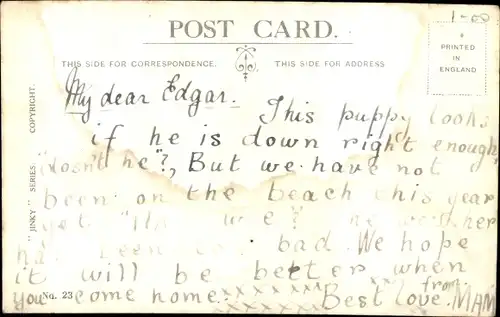 1-00
POST CARD.
THIS SIDE FOR CORRESPONDENCE.
THIS SIDE FOR ADDRESS
PRINTED
IN
ENGLAND
"JINKY" SERIES COPYRIGHT.
My dear Edgar.
This puppy looks
if he is down right enough,
doesn't he?, But we have not
been on the beach this year
yet "Ha we?" The weather
has been bad. We hope
it will be better when
you come home. from.
No. 23
xxxxxxx Best love. MAM
xxxxxx